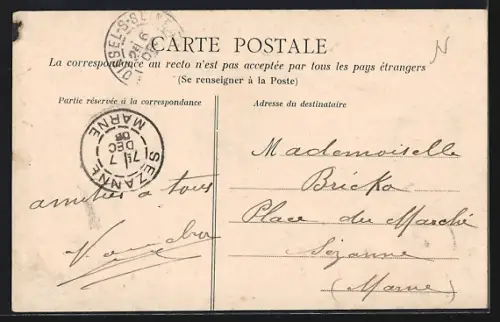 CARTE POSTALE
La correspondance au recto n'est pas acceptée par tous les pays étrangers
(Se renseigner à la Poste)
Partie réservée à la correspondance
Adresse du destinataire
SEZANNE
7 DEC
MARNE
amitiés à tous
Mademoiselle
Bricka
Place du Marché
Sézanne
(Marne)
N